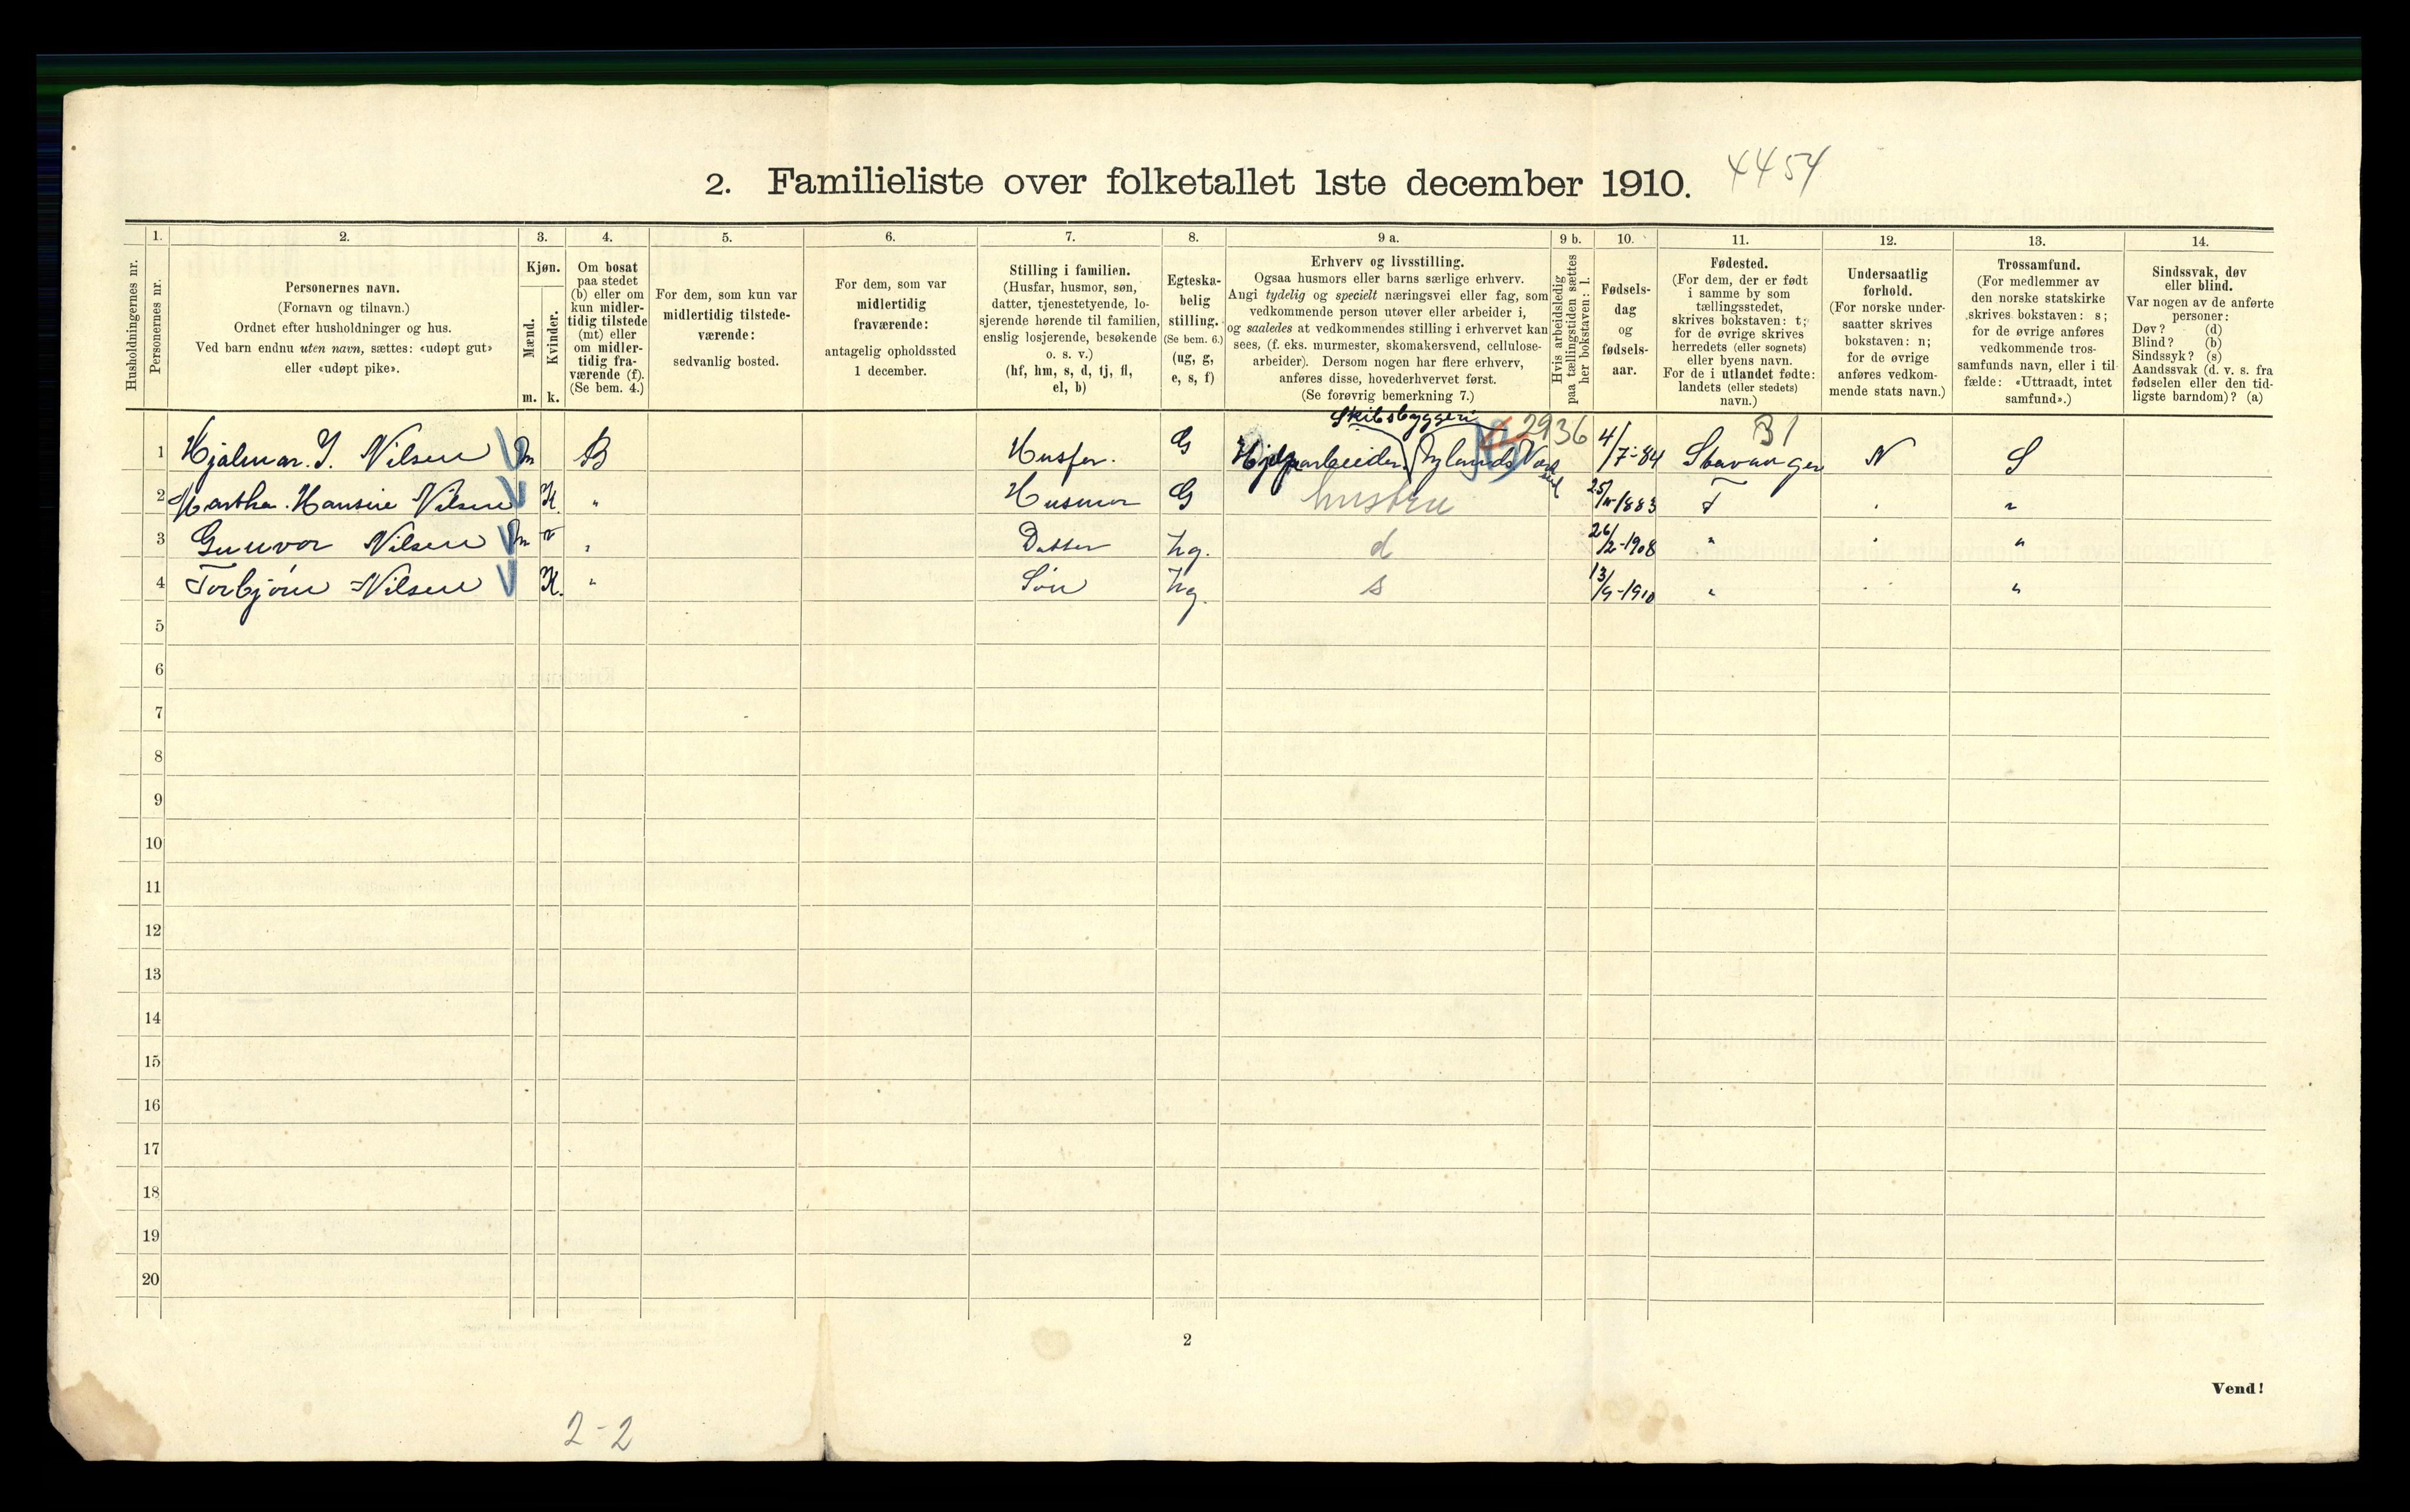 2. Familieliste over folketallet 1ste december 1910. 4454
Husholdningernes nr.
1.
Personernes nr.
2.
Personernes navn.
(Fornavn og tilnavn.)
Ordnet efter husholdninger og hus.
Ved barn endnu uten navn, sættes: «udøpt gut»
eller «udøpt pike».
3.
Kjøn.
Mænd.
Kvinder.
m. k.
4.
Om bosat
paa stedet
(b) eller om
kun midler-
tidig tilstede
(mt) eller
om midler-
tidig fra-
værende (f).
(Se bem. 4.)
5.
For dem, som kun var
midlertidig tilstede-
værende:
sedvanlig bosted.
6.
For dem, som var
midlertidig
fraværende:
antagelig opholdssted
1 december.
7.
Stilling i familien.
(Husfar, husmor, søn,
datter, tjenestetyende, lo-
sjerende hørende til familien,
enslig losjerende, besøkende
o. s. v.)
(hf, hm, s, d, tj, fl,
el, b)
8.
Egteska-
belig
stilling.
(Se bem. 6.)
(ug, g,
e, s, f)
9 a.
Erhverv og livsstilling.
Ogsaa husmors eller barns særlige erhverv.
Angi tydelig og specielt næringsvei eller fag, som
vedkommende person utøver eller arbeider i,
og saaledes at vedkommendes stilling i erhvervet kan
sees, (f. eks. murmester, skomakersvend, cellulose-
arbeider). Dersom nogen har flere erhverv,
anføres disse, hovederhvervet først.
(Se forøvrig bemerkning 7.)
9 b.
Hvis arbeidsledig
paa tællingstiden sættes
her bokstaven: l.
10.
Fødsels-
dag
og
fødsels-
aar.
11.
Fødested.
(For dem, der er født
i samme by som
tællingsstedet,
skrives bokstaven: t;
for de øvrige skrives
herredets (eller sognets)
eller byens navn.
For de i utlandet fødte:
landets (eller stedets)
navn.)
12.
Undersaatlig
forhold.
(For norske under-
saatter skrives
bokstaven: n;
for de øvrige
anføres vedkom-
mende stats navn.)
13.
Trossamfund.
(For medlemmer av
den norske statskirke
skrives bokstaven: s;
for de øvrige anføres
vedkommende tros-
samfunds navn, eller i til-
fælde: «Uttraadt, intet
samfund».)
14.
Sindssvak, døv
eller blind.
Var nogen av de anførte
personer:
Døv? (d)
Blind? (b)
Sindssyk? (s)
Aandssvak (d. v. s. fra
fødselen eller den tid-
ligste barndom)? (a)
Skibsbyggeri 2936 31
1 Hjalmar. J. Nilsen m B Husfar. G Hjelpearbeider Nylands 4/7-84 Stavanger N S
2 Martha. Hansine Nilsen K. " Husmor G hustru 25/ 1883 T " "
3 Gunvor Nilsen m " Datter Ug. d 26/2-1908 " " "
4 Torbjørn Nilsen K. " Søn Ug. s 13/9-1910 " " "
5
6
7
8
9
10
11
12
13
14
15
16
17
18
19
20
2
Vend!
2-2